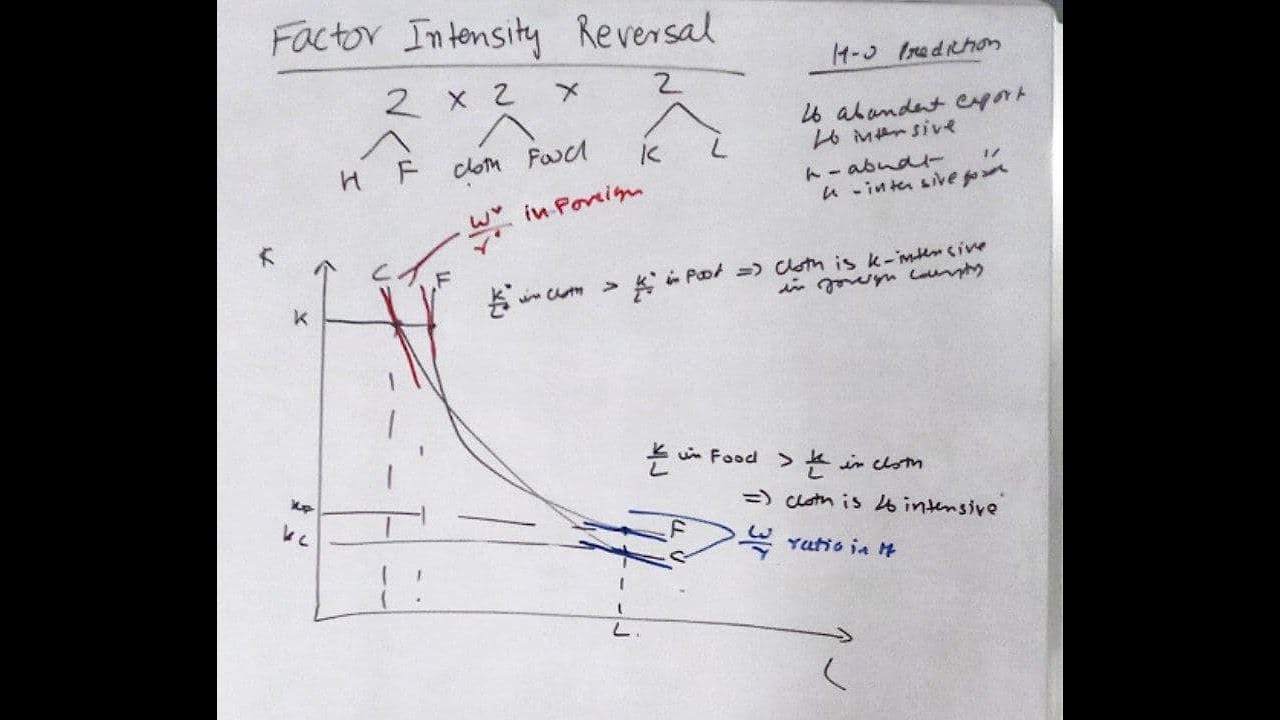 Factor Intensity Reversal
2 x 2 x 2
H F cloth Food K L
H-O Prediction
Lb abundent export
Lb intensive
K-abudt "
K-intensive good
w*/r* in Foreign
K
C F
K
K*/L* in cloth > K*/L* in Food => cloth is K-intensive
in foreign country
K/L in Food > K/L in cloth
=> cloth is Lb intensive
KF
KC
F
C
w/r ratio in H
L.
L